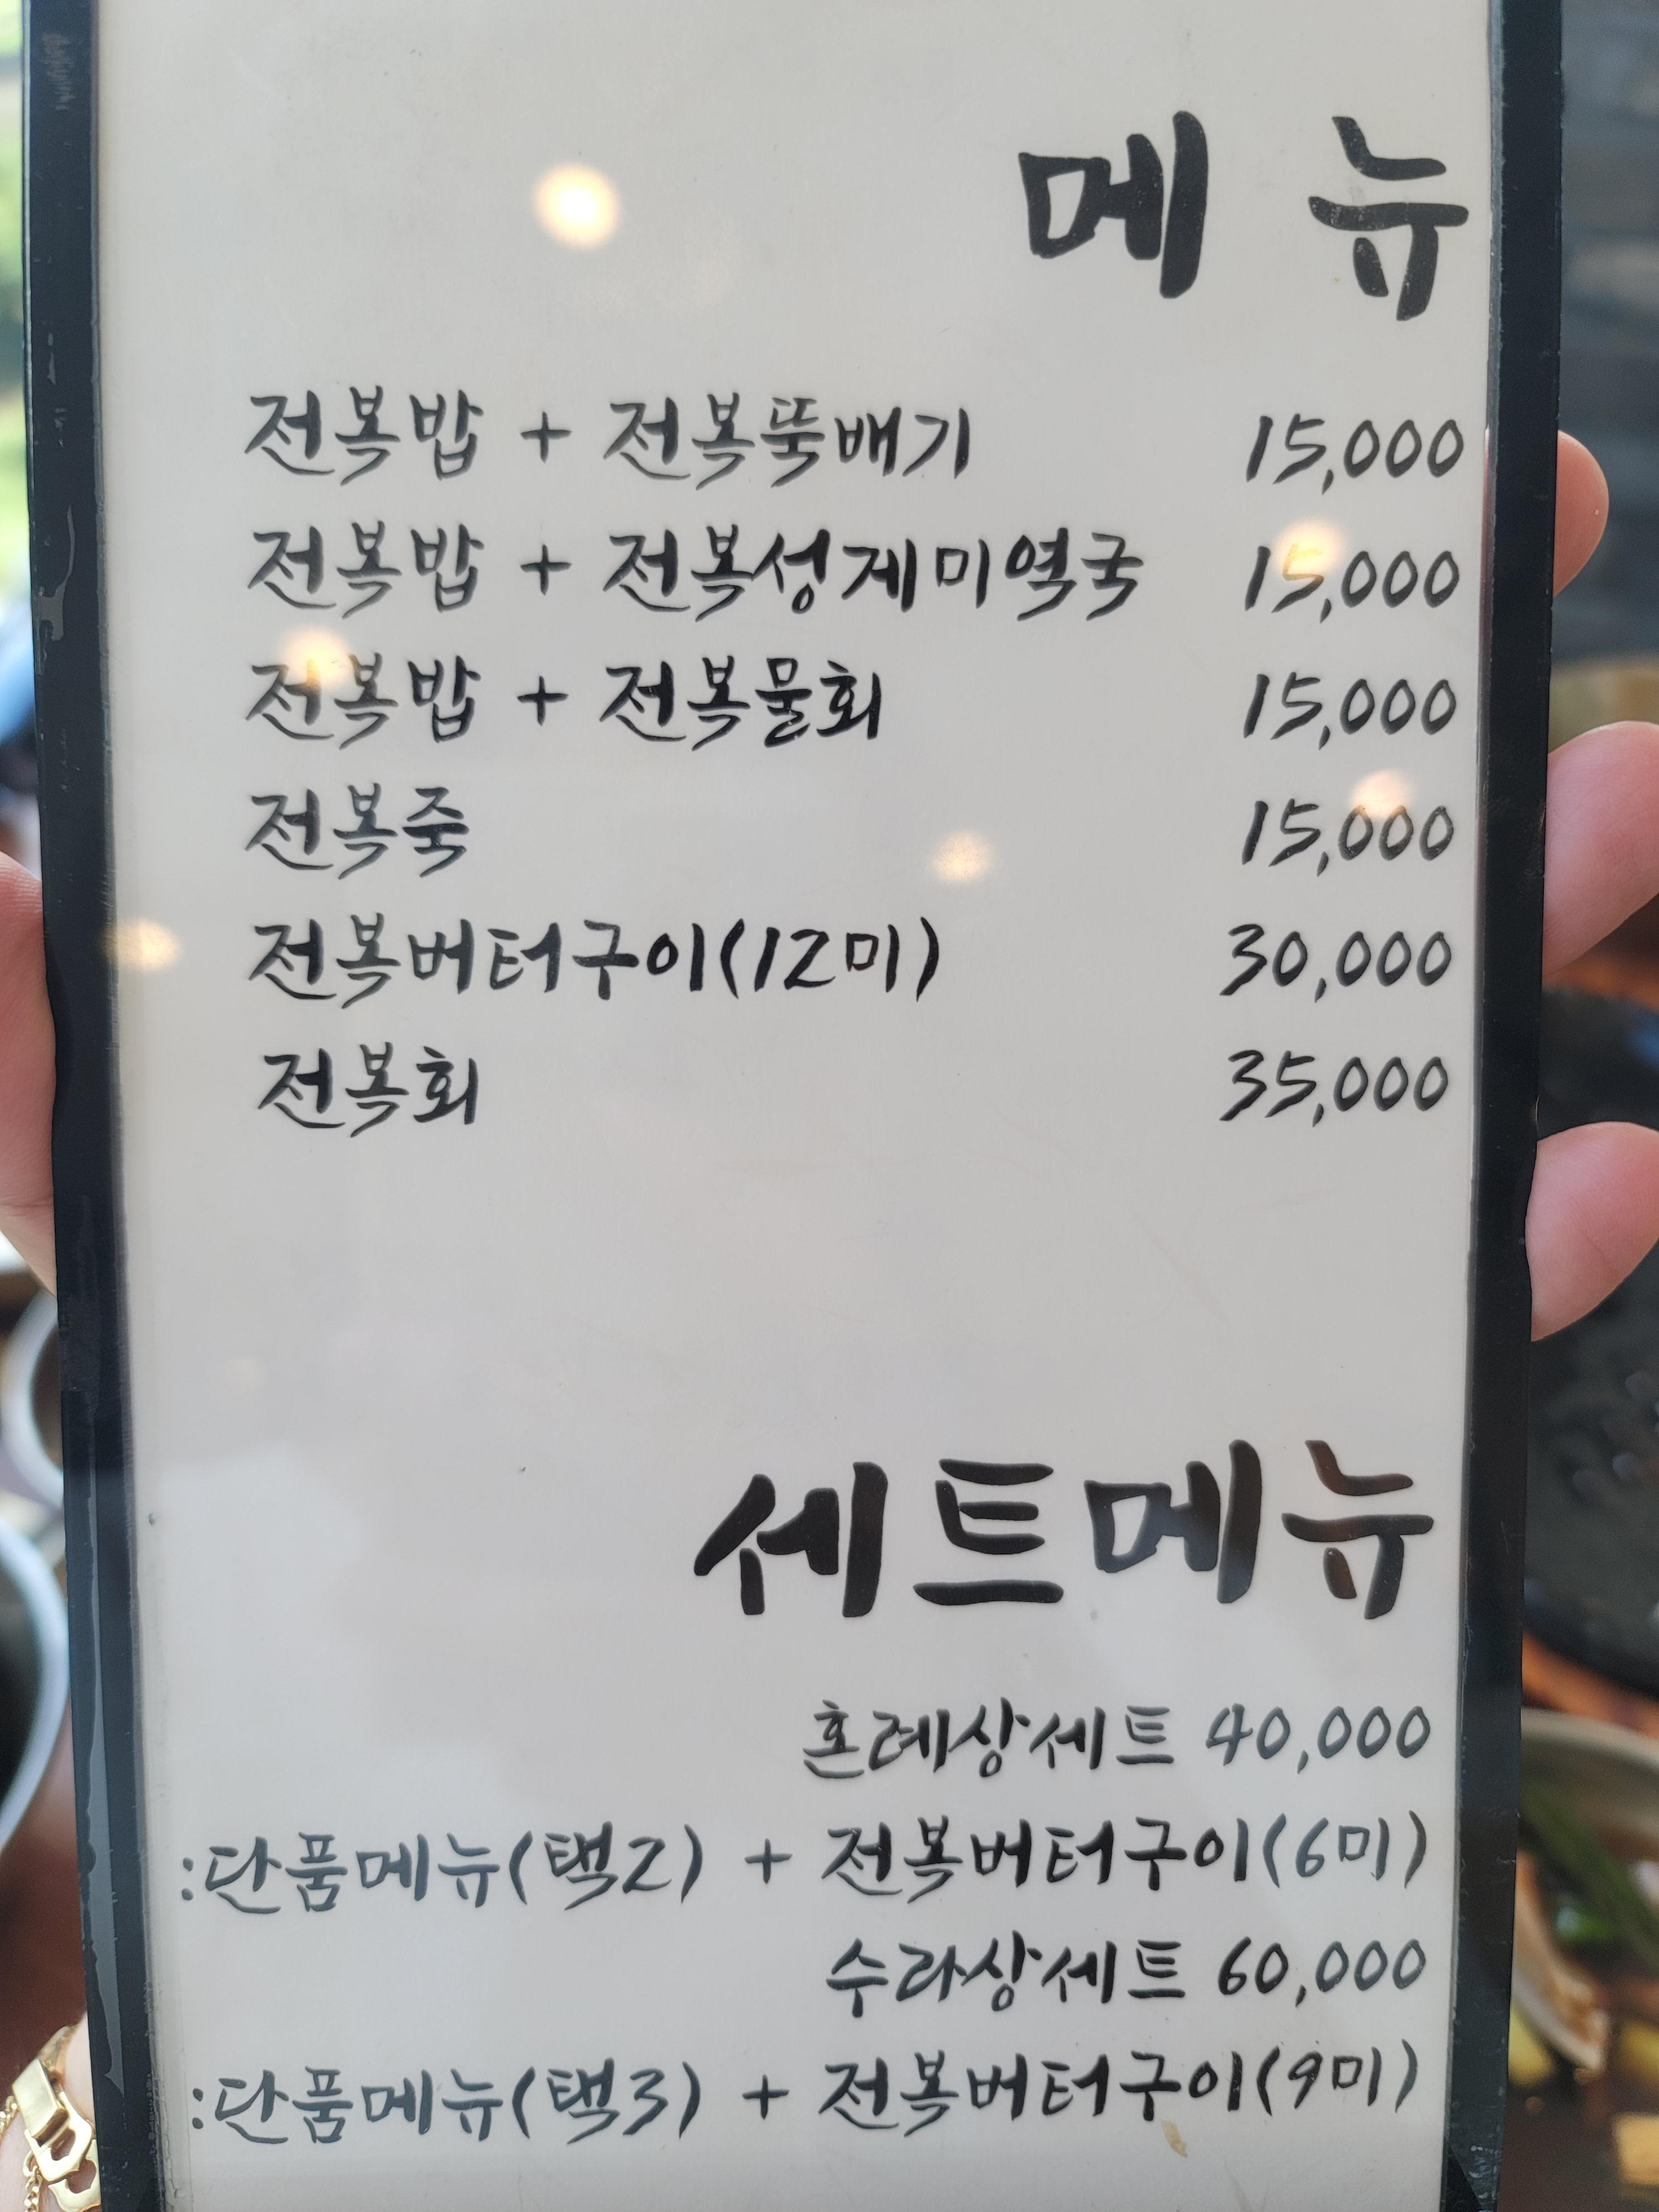 메뉴
전복밥 + 전복뚝배기 15,000
전복밥 + 전복성게미역국 15,000
전복밥 + 전복물회 15,000
전복죽 15,000
전복버터구이(12미) 30,000
전복회 35,000
세트메뉴
혼례상세트 40,000
:단품메뉴(택2) + 전복버터구이(6미)
수라상세트 60,000
:단품메뉴(택3) + 전복버터구이(9미)